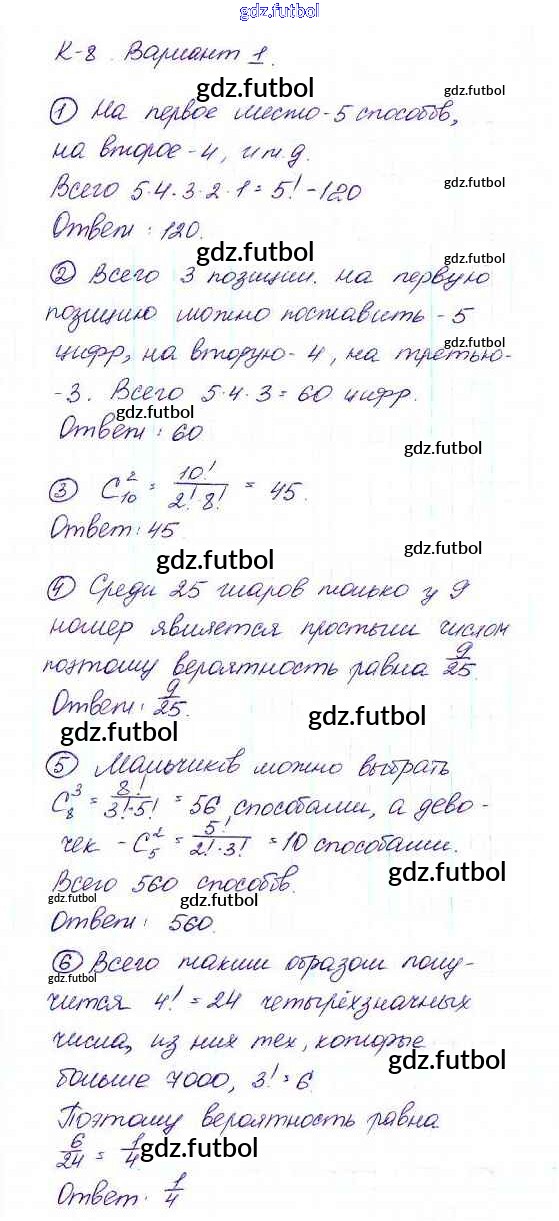 gdz.futbol
К-8. Вариант 1.
gdz.futbol
gdz.futbol
① На первое место - 5 способов,
на второе - 4, и т.д.
gdz.futbol
Всего 5·4·3·2·1 = 5! - 120
Ответ: 120.
gdz.futbol
gdz.futbol
② Всего 3 позиции. на первую
позицию можно поставить - 5
gdz.futbol
цифр, на вторую - 4, на третью -
- 3. Всего 5·4·3 = 60 цифр.
gdz.futbol
Ответ: 60
gdz.futbol
③ C²₁₀ = 10!/(2!·8!) = 45.
Ответ: 45
gdz.futbol
gdz.futbol
④ Среди 25 шаров только у 9
номер является простым числом
поэтому вероятность равна 9/25.
Ответ: 9/25.
gdz.futbol
gdz.futbol
⑤ Мальчиков можно выбрать
C³₈ = 8!/(3!·5!) = 56 способами, а дево-
чек - C²₅ = 5!/(2!·3!) = 10 способами.
gdz.futbol
Всего 560 способов.
gdz.futbol
gdz.futbol
Ответ: 560.
⑥ Всего таким образом полу-
gdz.futbol
чится 4! = 24 четырёхзначных
числа, из них тех, которые
gdz.futbol
больше 7000, 3! = 6.
Поэтому вероятность равна
6/24 = 1/4.
gdz.futbol
Ответ: 1/4